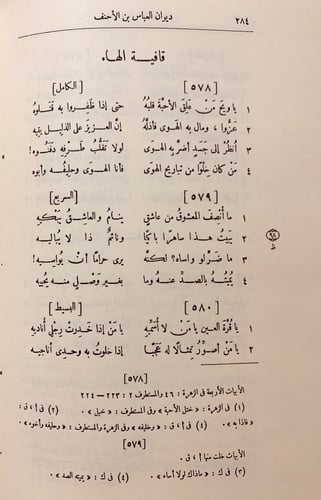 ٢٨٤ ديوان العباس بن الأحنف
قافية الهاء
[٥٧٨] [الكامل]
١ يا ويحَ مَنْ عَلِقَ الأحبَّةَ قلبُهُ حتى إذا ظَفِروا به قَتَلوهُ
٢ عَزُّوا، ومال به الهوى فأذلَّهُ إنَّ العزيزَ على الذليلِ يَتِيهُ
٣ أنظُرْ إلى جَسَدٍ أضرَّ به الهوى لولا تَقَلُّبُ طَرْفِهِ دَفَنُوه!
٤ مَن كان خِلْوًا من تباريح الهوى فأنا الهوى وحليفُه وأبوه
[٥٧٩] [السريع]
١ ما أنصفَ المعشوقُ من عاشقٍ ينامُ والعاشقُ يَبْكيهِ
٢ يَبيتُ هذا ساهرًا باكيًا ونائمٌ ذا لا يُباليه
٣ ما ضرَّ لو واساه؟ لكنَّه يرى حرامًا أنْ يُواسِيه!
٤ يُميتُهُ بالصدِّ عنهُ وما بغيرِ وَصْلٍ منه يُحييه
[٥٨٠] [البسيط]
١ يا قُرَّةَ العينِ يا مَن لا أُسمِّيهِ يا مَنْ إذا خَدِرَتْ رِجْلي أُناديهِ
٢ يا مَن أُصوِّرُ تِمثالًا له عَجَبًا إذا خلوتُ به وحدي أُناجيه
[٥٧٨]
الأبيات الأربعة فى الزهرة : ٤٦ والمستطرف ٢ : ٢٢٣ – ٢٢٤
(١) فى الزهرة : « ختل الأحبة » وفى المستطرف : « خبل » . (٢) فى أ ، ق :
« فاذا به » . (٤) أ ، ق : « وخليفه » وفى الزهرة والمستطرف : « وحليفه وأخوه » .
[٥٧٩]
الأبيات خلت منها أ ، ق .
(٣) فى ك : « ماذاك لولا أساء » . (٤) فى ك : « يميته الصد » .